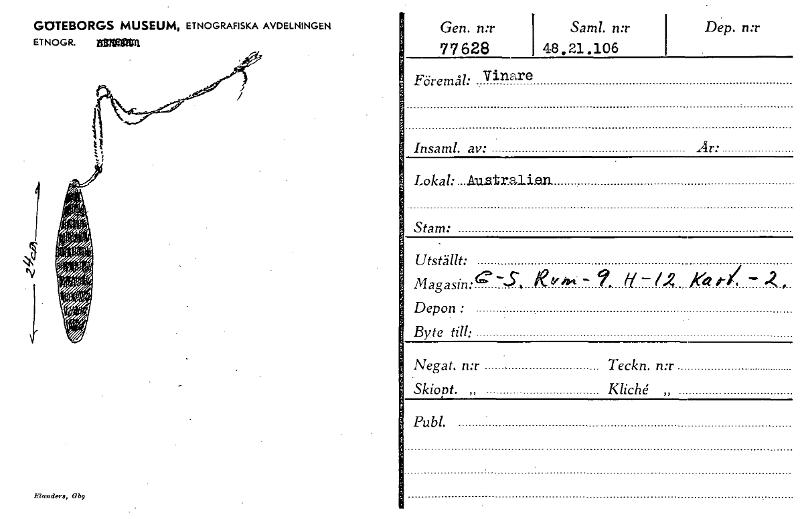 GÖTEBORGS MUSEUM, ETNOGRAFISKA AVDELNINGEN
ETNOGR.
24cm
Elanders, Gbg
Gen. n:r Saml. n:r Dep. n:r
77628 48.21.106
Föremål: Vinare
Insaml. av: År:
Lokal: Australien
Stam:
Utställt:
Magasin: G-5. Rum-9. H-12 Kart.-2.
Depon:
Byte till:
Negat. n:r Teckn. n:r
Skiopt. „ Kliché „
Publ.